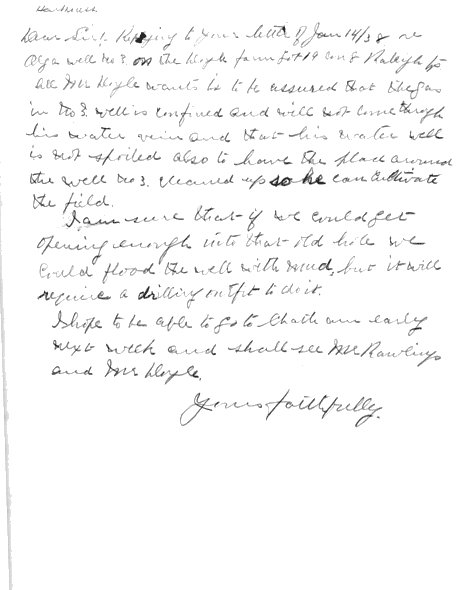 Dear Sir:- Replying to your letter of Jan 14/38 re
Alga well No 3 on the Doyle farm Lot 19 Con 8 Raleigh Tp
all Mr Doyle wants is to be assured that the gas
in No 3 well is confined and will not come through
his water vein and that his water well
is not spoiled also to have the place around
the well No 3. cleaned up so he can cultivate
the field.
I am sure that if we could get
opening enough into that old hole we
could flood the well with mud, but it will
require a drilling outfit to do it.
I hope to be able to go to Chatham early
next week and shall see Mr Rawlings
and Mr Doyle.
Yours faithfully.